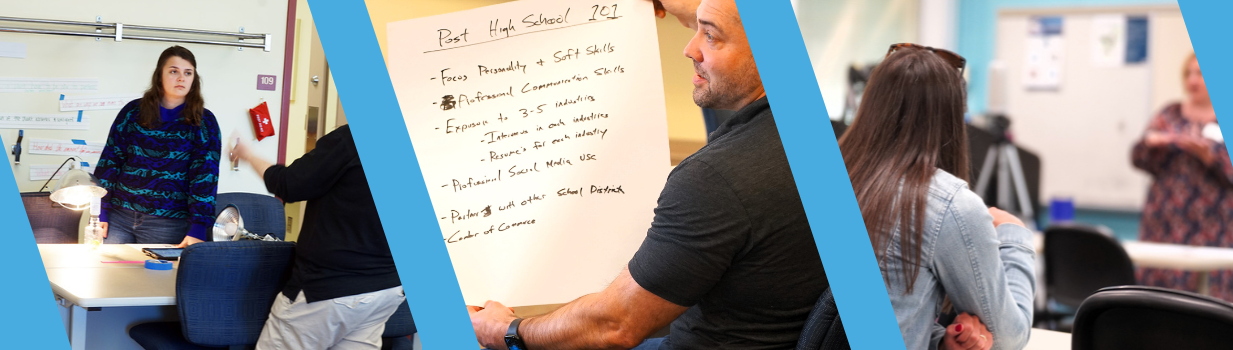 109
Post High School 101
- Focus Personality + Soft Skills
- Professional Communication Skills
- Exposure to 3-5 industries
- Interviews in each industries
- Resume's for each industry
- Professional Social Media Use
- Partner with other School Districts
- Center of Commerce